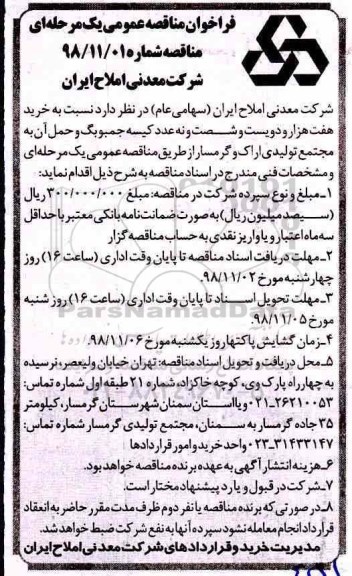 فراخوان مناقصه عمومی یک مرحله‌ای
مناقصه شماره ۹۸/۱۱/۰۱
شرکت معدنی املاح ایران
شرکت معدنی املاح ایران (سهامی عام) در نظر دارد نسبت به خرید
هفت هزار و دویست و شصت و نه عدد کیسه جمبوبگ و حمل آن به
مجتمع تولیدی اراک و گرمسار از طریق مناقصه عمومی یک مرحله‌ای
و مشخصات فنی مندرج در اسناد مناقصه به شرح ذیل اقدام نماید:
۱ـ مبلغ و نوع سپرده شرکت در مناقصه: مبلغ ۳۰۰/۰۰۰/۰۰۰ ریال
(سیصد میلیون ریال) به صورت ضمانت‌نامه بانکی معتبر با حداقل
سه ماه اعتبار و یا واریز نقدی به حساب مناقصه‌گزار
۲ـ مهلت دریافت اسناد مناقصه تا پایان وقت اداری (ساعت ۱۶) روز
چهارشنبه مورخ ۹۸/۱۱/۰۲.
۳ـ مهلت تحویل اسناد تا پایان وقت اداری (ساعت ۱۶) روز شنبه
مورخ ۹۸/۱۱/۰۵.
۴ـ زمان گشایش پاکتها روز یکشنبه مورخ ۹۸/۱۱/۰۶.
۵ـ محل دریافت و تحویل اسناد مناقصه: تهران خیابان ولیعصر، نرسیده
به چهارراه پارک وی، کوچه خاکزاد، شماره ۲۱ طبقه اول شماره تماس:
۰۲۱-۲۶۲۱۰۰۵۳ و یا استان سمنان شهرستان گرمسار، کیلومتر
۳۵ جاده گرمسار به سمنان، مجتمع تولیدی گرمسار شماره تماس:
۰۲۳-۳۱۴۳۳۱۴۷ واحد خرید و امور قراردادها
۶ـ هزینه انتشار آگهی به عهده برنده مناقصه خواهد بود.
۷ـ شرکت در قبول و یا رد پیشنهاد مختار است.
۸ـ در صورتی که برنده مناقصه یا نفر دوم ظرف مدت مقرر حاضر به انعقاد
قرارداد انجام معامله نشود سپرده آنها به نفع شرکت ضبط خواهد شد.
مدیریت خرید و قراردادهای شرکت معدنی املاح ایران